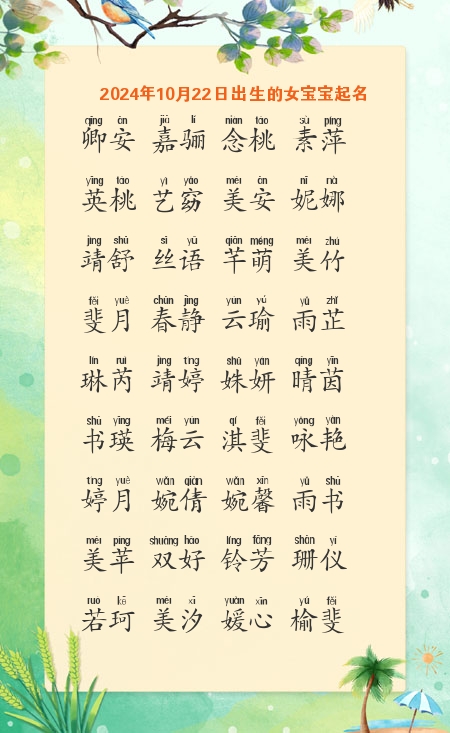 2024年10月22日出生的女宝宝起名
qīng ān jiā lí niàn táo sù píng
卿安 嘉骊 念桃 素萍
yīng táo yì yǎo měi ān nī nà
英桃 艺窈 美安 妮娜
jìng shū sī yǔ qiān méng měi zhú
靖舒 丝语 芊萌 美竹
fěi yuè chūn jìng yún yú yǔ zhǐ
斐月 春静 云瑜 雨芷
lín ruì jìng tíng shū yán qíng yīn
琳芮 靖婷 姝妍 晴茵
shū yīng méi yún qí fěi yǒng yàn
书瑛 梅云 淇斐 咏艳
tíng yuè wǎn qiàn wǎn xīn yǔ shū
婷月 婉倩 婉馨 雨书
měi píng shuāng hǎo líng fāng shān yí
美苹 双好 铃芳 珊仪
ruò kē měi xī yuàn xīn yú fěi
若珂 美汐 媛心 榆斐